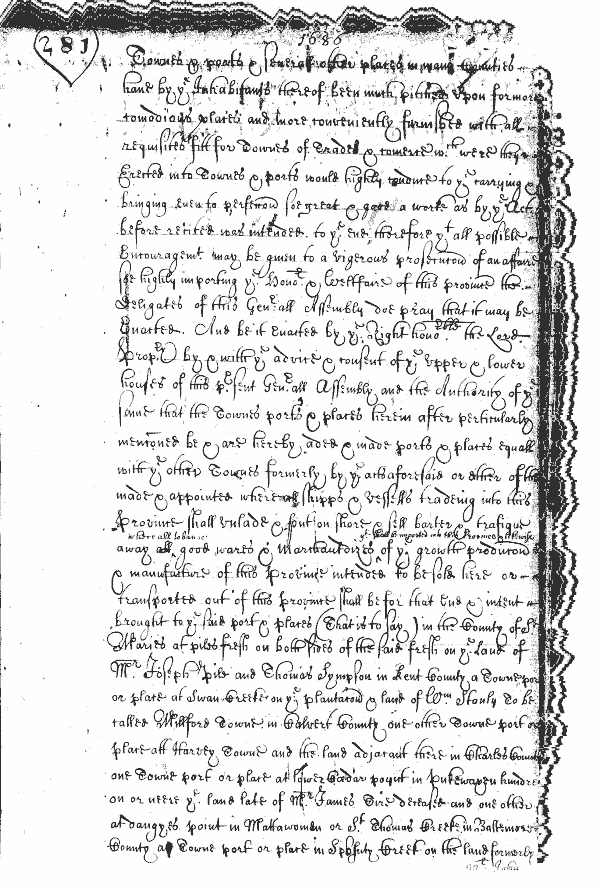 281
1686
Townes & ports & severall other places in many Counties
have by ye Inhabitants thereof been much pitched upon for more
comodious places and more conveniently furnished with all
requisites fitt for Townes of Trades & comerce wch were they
Erected into Townes & ports would highly conduce to ye carrying &
bringing even to perfection soe great & good a worke as by ye Act
before recited was intended. to ye end therefore yt all possible
Encouragemt may be given to a vigerous prosecution of an affaire
soe highly importing ye Honor & Wellfaire of this province the
deligates of this Genrall Assembly doe pray that it may be
Enacted. And be it Enacted by ye Right honoble the Lord
Propry by & with ye advice & consent of ye upper & lower
houses of this prsent Genrall Assembly and the Authority of ye
same that the Townes ports & places herein after perticularly
mentioned be & are hereby aded & made ports & places equall
with ye other Townes formerly by ye act aforesaid or either of the
made & appointed where all shipps & vessells tradeing into this
Province shall unlade & put on shore & sell barter & trafique
where all to be and yt shall be imported into this Province as likewise
away all good wares & Marchandizes of ye growth production
& manufacture of this Province intended to be sold here or
transported out of this province shall be for that End & intent
brought to ye said port & places (That is to say) in the County of St
Maries at piles fresh on both sides of the said fresh on ye Land of
Mr Joseph Pile and Thomas Sympson in Kent County a Towne port
or place at Swan Creeke on ye plantacon & land of Wm Stanly to be
called Millford Towne in Calvert County one other Towne port or
place att Harvey Towne and the land adjacant there in Charles County
one Towne port or place at lower Cedar poynt in Pukewaxen hundred
on or neere ye land late of Mr James Tire deceased and one other
at dangyes point in Mattawoman or St Thomas Creeke in Baltemore
County a Towne port or place in Spesuty Creek on the land formerly